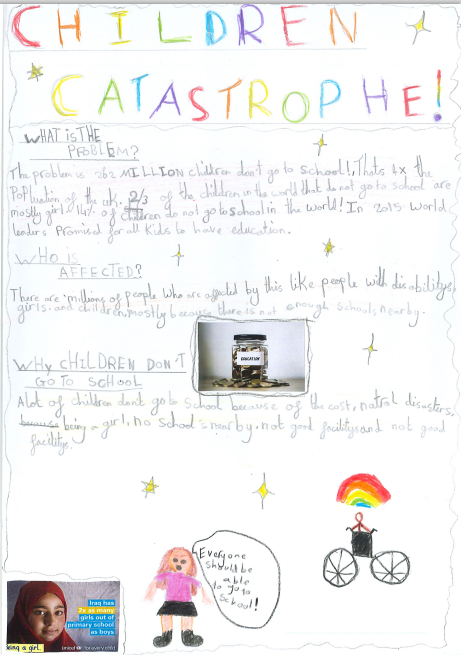 CHILDREN
CATASTROPHE!
WHAT iS THE
PROBLEM?
The problem is 262 MILLION children don't go to school!, Thats 4x the
Popluation of the uk. 2/3 of the children in the world that do not go to school are
mostly girls 14% of children do not go to school in the world! In 2015 world
leaders Promised for all kids to have education.
WHO is
AFFECTED?
There are millions of people who are affected by this like people with disabilitys,
girls, and children, mostly because there is not enough schools nearby.
EDUCATION
WHy CHILDREN DON'T
GO TO SCHOOL
A lot of children dont go to school because of the cost, natral disasters,
because being a girl, no school's nearby, not good facilitys and not good
facilitys.
Everyone
should be
able
to go to
school!
Iraq has
2x as many
girls out of
primary school
as boys
being a girl.